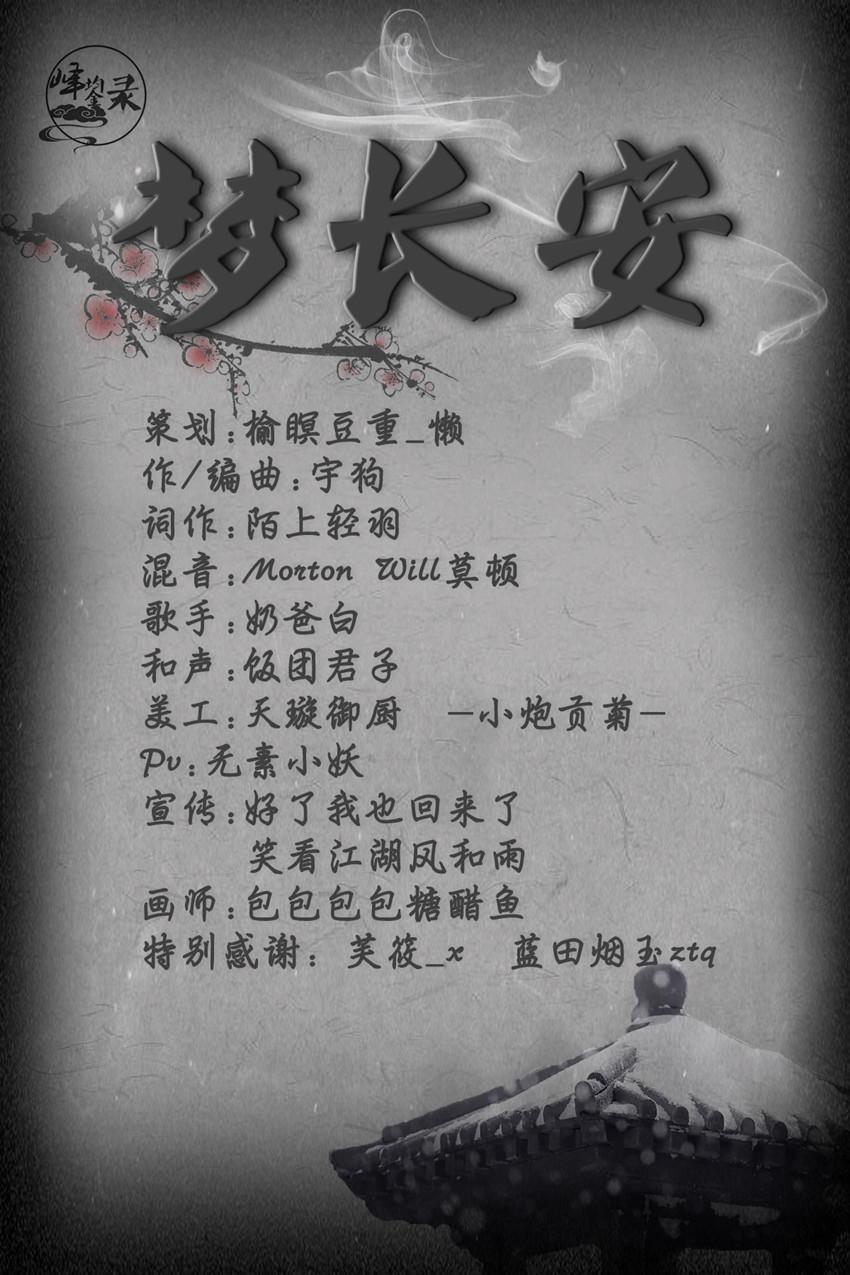 峰均鉴录
梦长安
策划:榆瞑豆重_懒
作/编曲:宇狗
词作:陌上轻羽
混音:Morton Will莫顿
歌手:奶爸白
和声:饭团君子
美工:天璇御厨 —小炮贡菊—
Pv:无素小妖
宣传:好了我也回来了
笑看江湖风和雨
画师:包包包包糖醋鱼
特别感谢: 芙筱_x 蓝田烟玉ztq